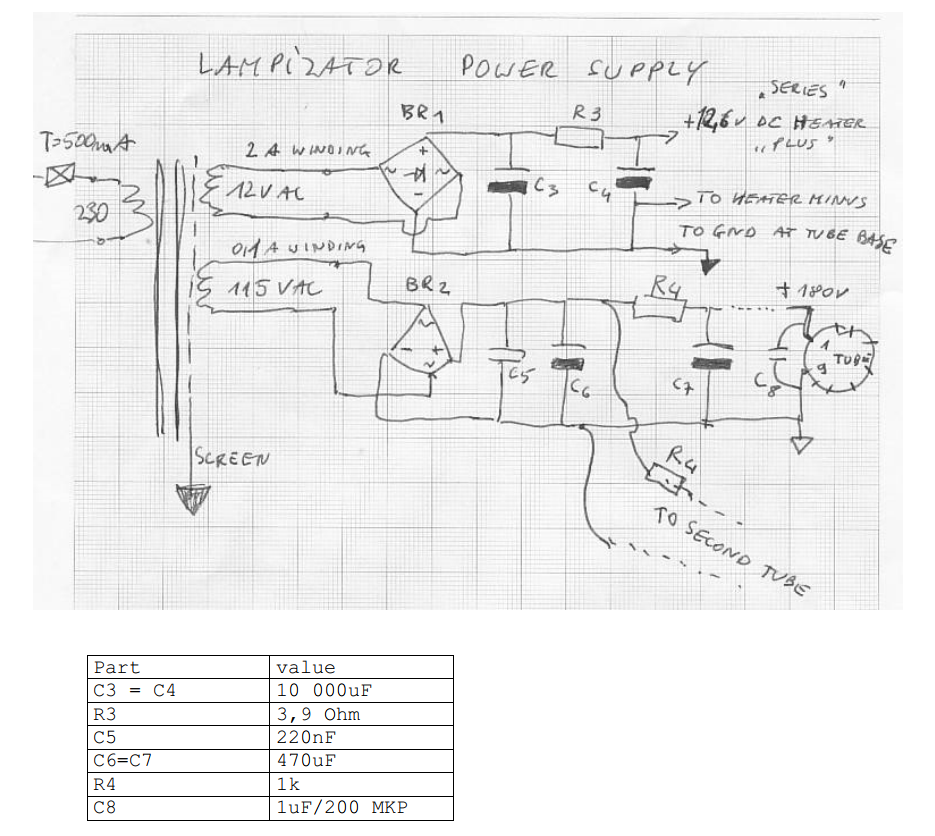 LAMPiZATOR POWER SUPPLY
„SERIES"
BR1
R3
+12,6V DC HEATER
„PLUS"
T=500mA
2 A WINDING
+
~
~
-
12V AC
C3
C4
TO HEATER MINUS
230
TO GND AT TUBE BASE
0,1 A WINDING
115 VAC
BR2
R4
+180V
~
-
+
~
C5
C6
C7
C8
1
TUBE
9
SCREEN
R4
TO SECOND TUBE
Part value
C3 = C4 10 000uF
R3 3,9 Ohm
C5 220nF
C6=C7 470uF
R4 1k
C8 1uF/200 MKP